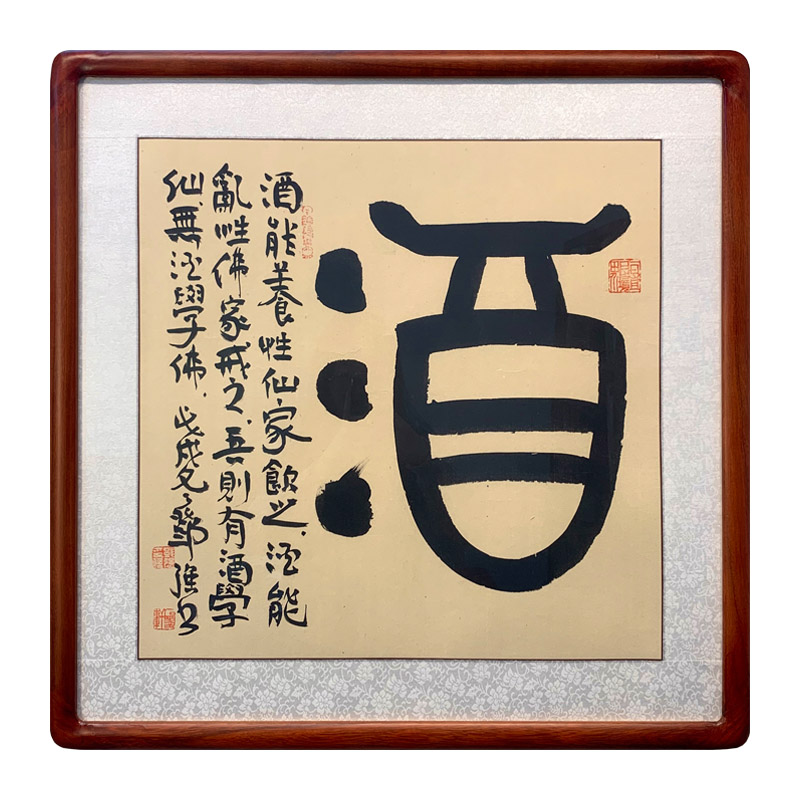 酒
酒能養性仙家飲之酒能
亂性佛家戒之吾則有酒學
仙無酒學佛 戊戌冬